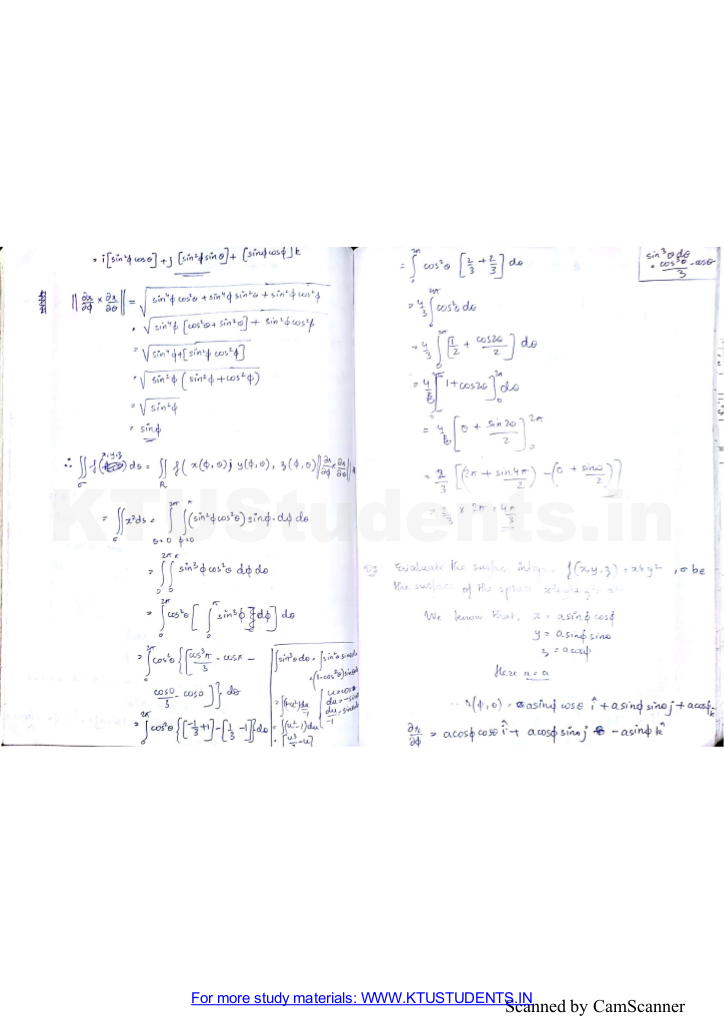 = i [sin²φ cosθ] + j [sin²φ sinθ] + [sinφ cosφ] k
|| ∂r/∂φ × ∂r/∂θ || = √(sin⁴φ cos²θ + sin⁴φ sin²θ + sin²φ cos²φ)
= √(sin⁴φ [cos²θ + sin²θ] + sin²φ cos²φ)
= √(sin⁴φ + [sin²φ cos²φ])
= √(sin²φ (sin²φ + cos²φ))
= √sin²φ
= sinφ
∴ ∬σ f(x,y,z) ds = ∬R f( x(φ,θ) j y(φ,θ), z(φ,θ) || ∂r/∂φ × ∂r/∂θ ||
= ∬σ x² ds = ∫θ=0^2π ∫φ=0^π (sin²φ cos²θ) sinφ · dφ dθ
= ∫0^2π ∫0^π sin³φ cos²θ dφ dθ
= ∫0^2π cos²θ [ ∫0^π sin³φ dφ ] dθ
= ∫0^2π cos²θ { [ cos³π/3 - cosπ -
cos0/3 - cos0 ] } dθ
= ∫0^2π cos²θ { [-1/3 + 1] - [1/3 - 1] } dθ
∫ sin³θ dθ = ∫ sin²θ sinθ dθ
= (1 - cos²θ) sinθ
= ∫(1-u²) du/-1
u = cosθ
du = -sinθ
du/-1 = sinθ
= ∫(u² - 1) du
= [u³/3 - u]
= ∫0^2π cos²θ [2/3 + 2/3] dθ
sin³θ dθ
= cos³θ/3 - cosθ
= 4/3 ∫0^2π cos²θ dθ
= 4/3 ∫0^2π [1/2 + cos2θ/2] dθ
= 4/6 ∫ [1 + cos2θ]0^2π dθ
= 4/6 [θ + sin2θ/2]0^2π
= 2/3 [(2π + sin4π/2) - (0 + sin0/2)]
= 2/3 × 2π = 4π/3
Evaluate the surface f(x,y,z) = x²+y², σ be
the surface of the
We know that, x = a sinφ cosφ
y = a sinφ sinθ
z = a cosφ
Here a = a
∴ r(φ,θ) = a sinφ cosθ î + a sinφ sinθ j + a cosφ k
∂r/∂φ = a cosφ cosθ î + a cosφ sinθ j - a sinφ k̂
KTUStudents.in
For more study materials: WWW.KTUSTUDENTS.IN
Scanned by CamScanner